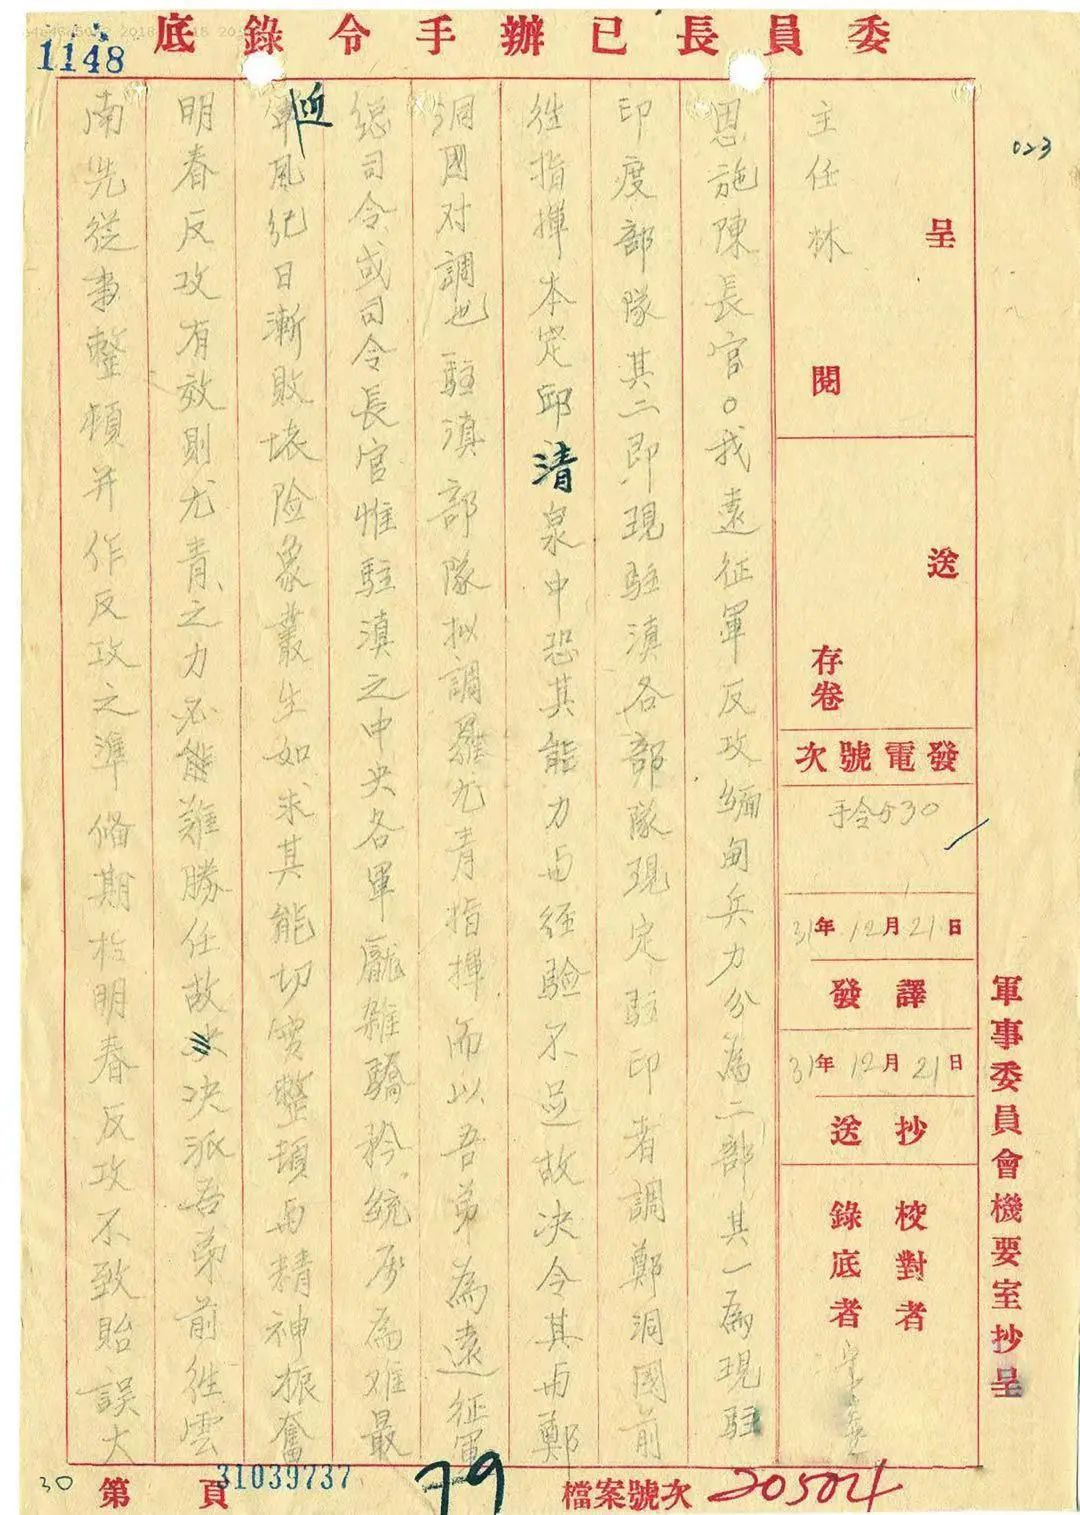 委員長已辦手令錄底
1148
023
呈
主任林
閱
送
存卷
發電號次
手令530
31年12月21日
譯發
31年12月21日
抄送
校對者
錄底者
軍事委員會機要室抄呈
恩施陳長官。我遠征軍反攻緬甸兵力分為二部其一為現駐
印度部隊其二即現駐滇各部隊現定駐印者調鄭洞國前
往指揮本定邱清泉中恐其能力与經驗不逗故决令其与鄭
洞國对調也駐滇部隊拟調羅尤青指揮而以吾弟為遠征軍
總司令或司令長官惟駐滇之中央各軍龐雜驕矜統度為难最
近軍風紀日漸敗壊险象叢生如求其能切實整頓与精神振奮
明春反攻有效則尤青之力必能難勝任故决派吾弟前往雲
南先從事整頓并作反攻之準偹期於明春反攻不致貽誤大
30
第 頁
31039737
79
檔案號次
20504